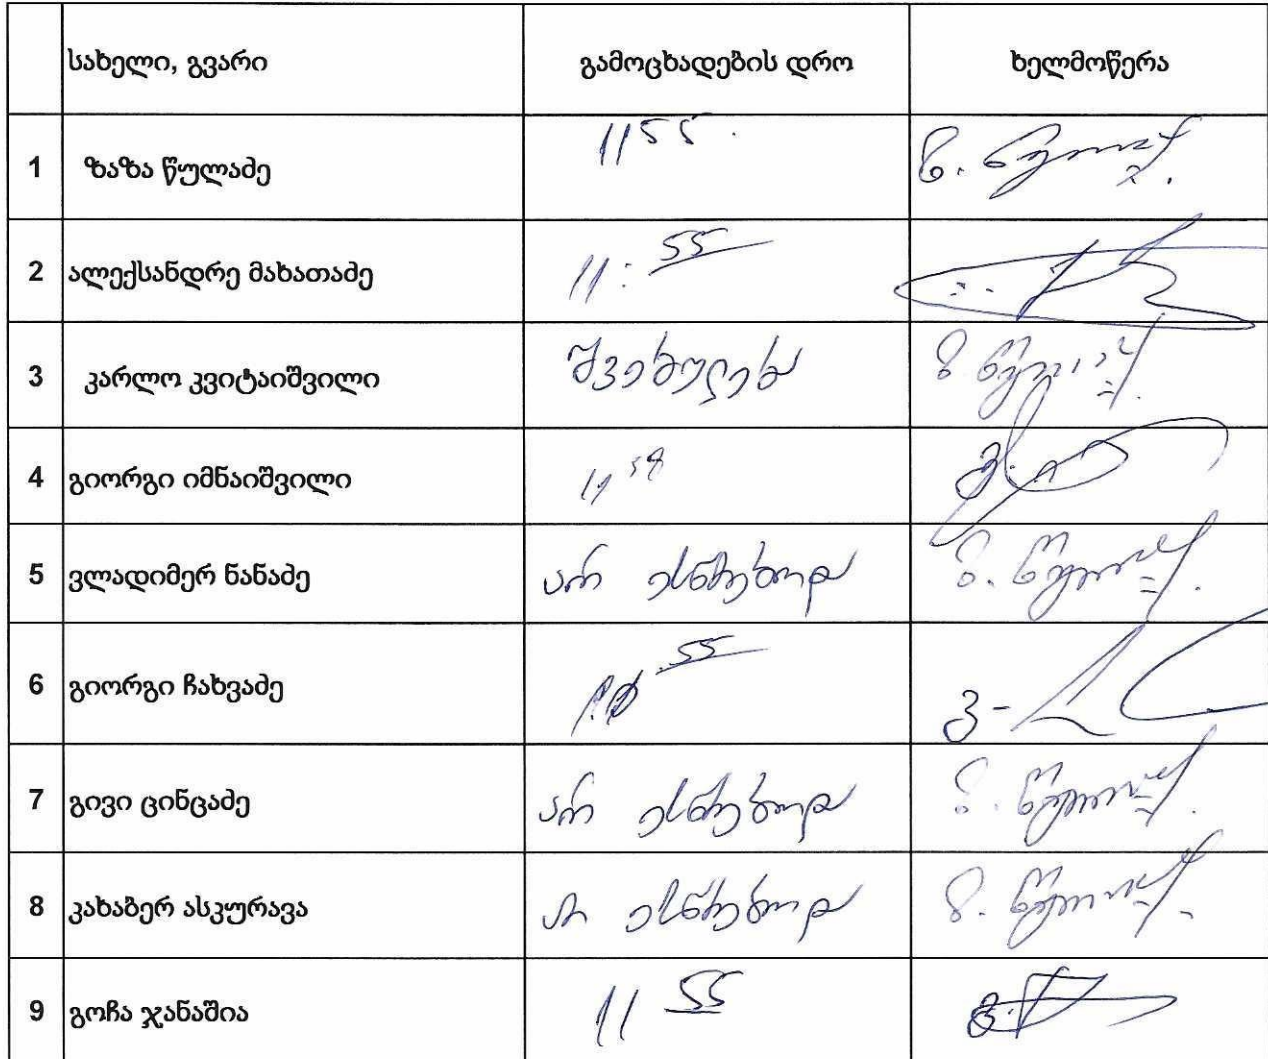 სახელი, გვარი გამოცხადების დრო ხელმოწერა
1 ზაზა წულაძე 11 55
2 ალექსანდრე მახათაძე 11: 55
3 კარლო კვიტაიშვილი შვებულება
4 გიორგი იმნაიშვილი
5 ვლადიმერ ნანაძე არ ესწრებოდა
6 გიორგი ჩახვაძე 55
7 გივი ცინცაძე არ ესწრებოდა
8 კახაბერ ასკურავა არ ესწრებოდა
9 გოჩა ჯანაშია 11 55